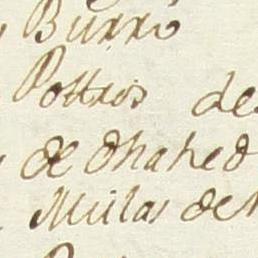 Burro
Pottris de
de dhahed
Mulas de